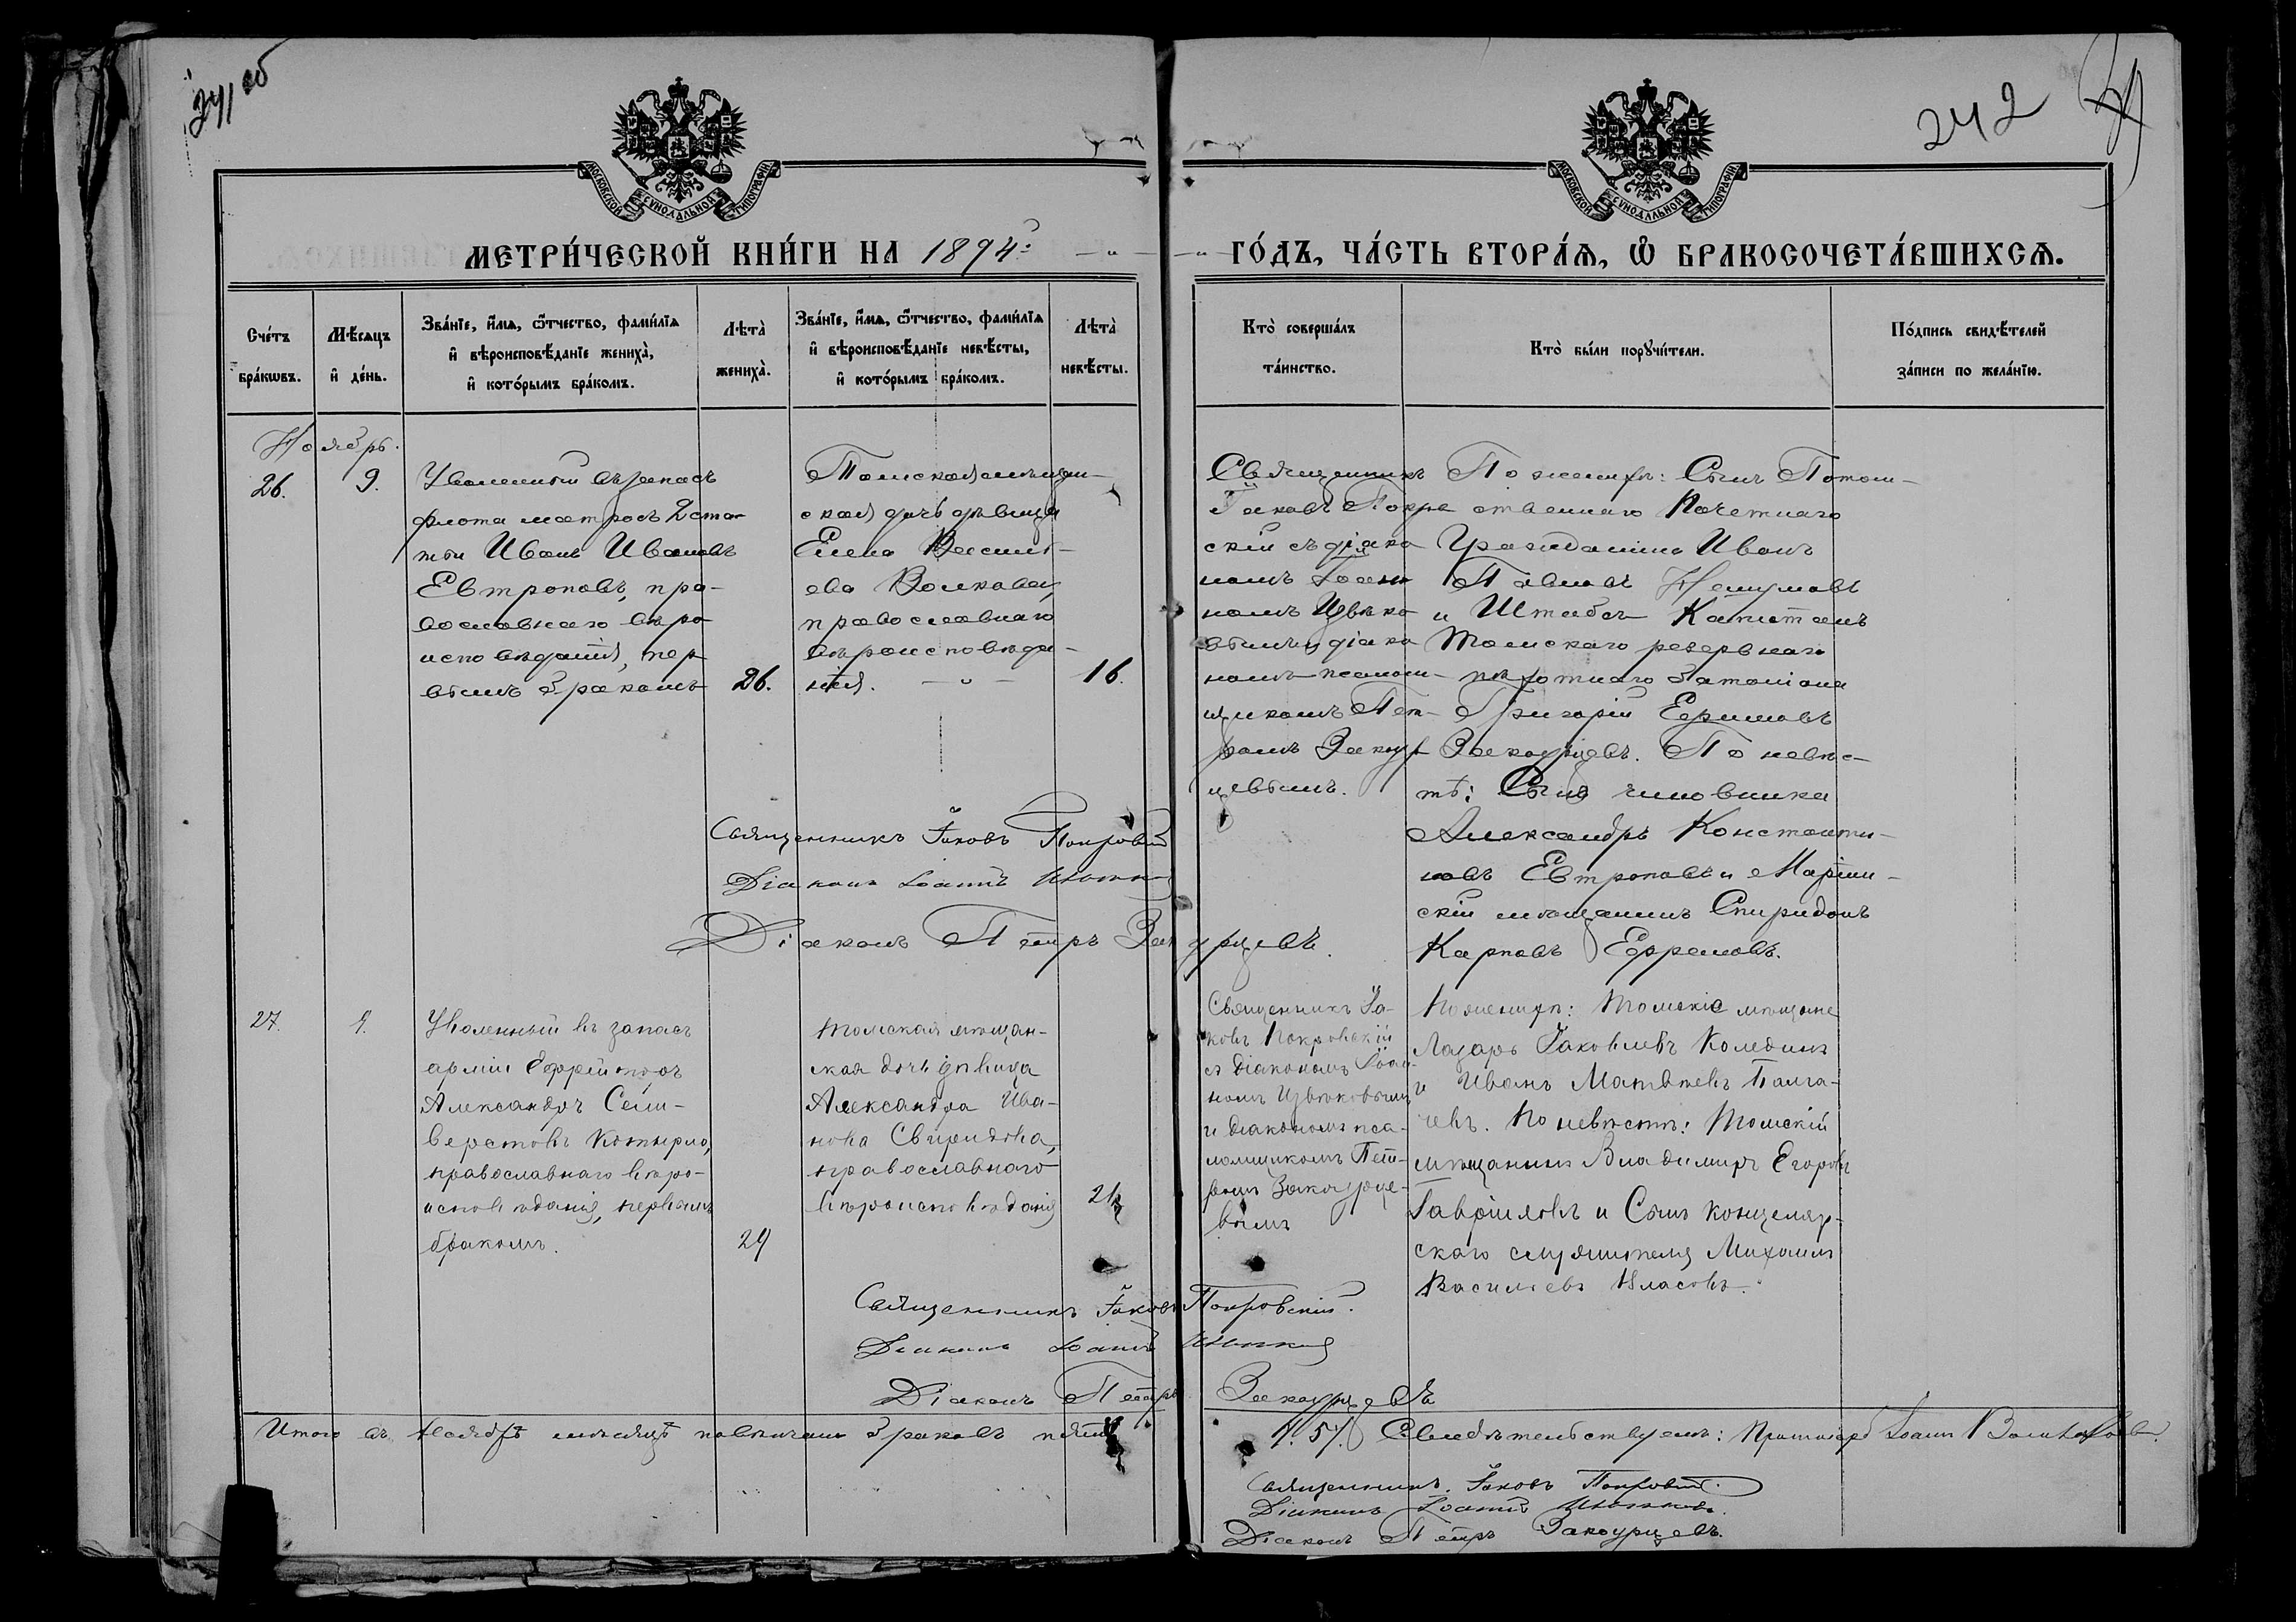 241 об
242
МОСКОВСКОЙ СѴНОДАЛЬНОЙ ТИПОГРАФІИ
МОСКОВСКОЙ СѴНОДАЛЬНОЙ ТИПОГРАФІИ
МЕТРИ́ЧЕСКОЙ КНИ́ГИ НА 1894й
ГО́ДЪ, ЧА́СТЬ ВТОРА́Ѧ, Ѽ БРАКОСОЧЕТА́ВШИХСѦ.
Сче́тъ
бра́кѡвъ.
Мѣ́сѧцъ
и҆ де́нь.
Зва́нїе, и҆́мѧ, ѻ҆́тчество, фами́лїѧ
и҆ вѣроисповѣ́данїе жениха̀,
и҆ кото́рымъ бра́комъ.
Лѣта̀
жениха̀.
Зва́нїе, и҆́мѧ, ѻ҆́тчество, фами́лїѧ
и҆ вѣроисповѣ́данїе невѣ́сты,
и҆ кото́рымъ бра́комъ.
Лѣта̀
невѣ́сты.
Кто̀ соверша́лъ
та́инство.
Кто̀ бы́ли порꙋчи́тели.
По́дпись свидѣ́телей
за́писи по жела́нїю.
Ноябрь.
26.
9.
Уволенный въ запасъ
флота матросъ 2 ста-
тьи Иванъ Ивановъ
Евтроповъ, пра-
вославнаго вѣро
исповѣданія, пер
вымъ бракомъ
26.
Томская мѣщан-
ская дочь дѣвица
Елена Василь-
ева Волкова,
православнаго
вѣроисповѣда-
нія.
16.
Священникъ
Іаковъ Покро
скій съ діако
номъ Іоан
номъ Цвѣтко
вымъ и діако
номъ псалом-
щикомъ Пет-
ромъ Закоур
цевымъ.
По женихѣ: Сынъ Потом-
ственнаго Почетнаго
Гражданина Иванъ
Павловъ
и Штабсъ Капитанъ
Томскаго резервнаго
пѣхотнаго баталіона
Григорій Ефимовъ
Закоурцевъ. По невѣс-
тѣ: Сынъ чиновника
Александръ Константи-
новъ Евтроповъ и Маріин-
скій мѣщанинъ Спиридонъ
Карповъ Ефремовъ.
Священникъ Іаковъ Покровскій
Діаконъ Іоаннъ Цвѣтковъ
Діаконъ Петръ Закоурцевъ.
27.
9.
Уволенный въ запасъ
арміи Ефрейторъ
Александръ Сели-
верстовъ Котырло,
православнаго вѣро-
исповѣданія, первымъ
бракомъ.
29
Томская мѣщан-
ская дочь дѣвица
Александра Ива-
нова Свиридова,
православнаго
вѣроисповѣданія
21
Священникъ Іа-
ковъ Покровскій
съ діакономъ Іоан-
номъ Цвѣтковымъ
и діакономъ пса-
ломщикомъ Пет-
ромъ Закоурце-
вымъ
По женихѣ: Томскіе мѣщане
Лазарь Іаковлевъ Колединъ
и Иванъ Матвѣевъ Палга-
чевъ. По невѣстѣ: Томскій
мѣщанинъ Владимиръ Егоровъ
Гавриловъ и Сынъ канцеляр-
скаго служителя Михаилъ
Васильевъ Власовъ.
Священникъ Іаковъ Покровскій.
Діаконъ Іоаннъ Цвѣтковъ
Діаконъ Петръ Закоурцевъ
Итого въ Ноябрѣ мѣсяцѣ повѣнчано браковъ пять
Свидѣтельствуемъ: Протоіерей Іоаннъ
Священникъ Іаковъ Покровскій.
Діаконъ Іоаннъ Цвѣтковъ.
Діаконъ Петръ Закоурцевъ.